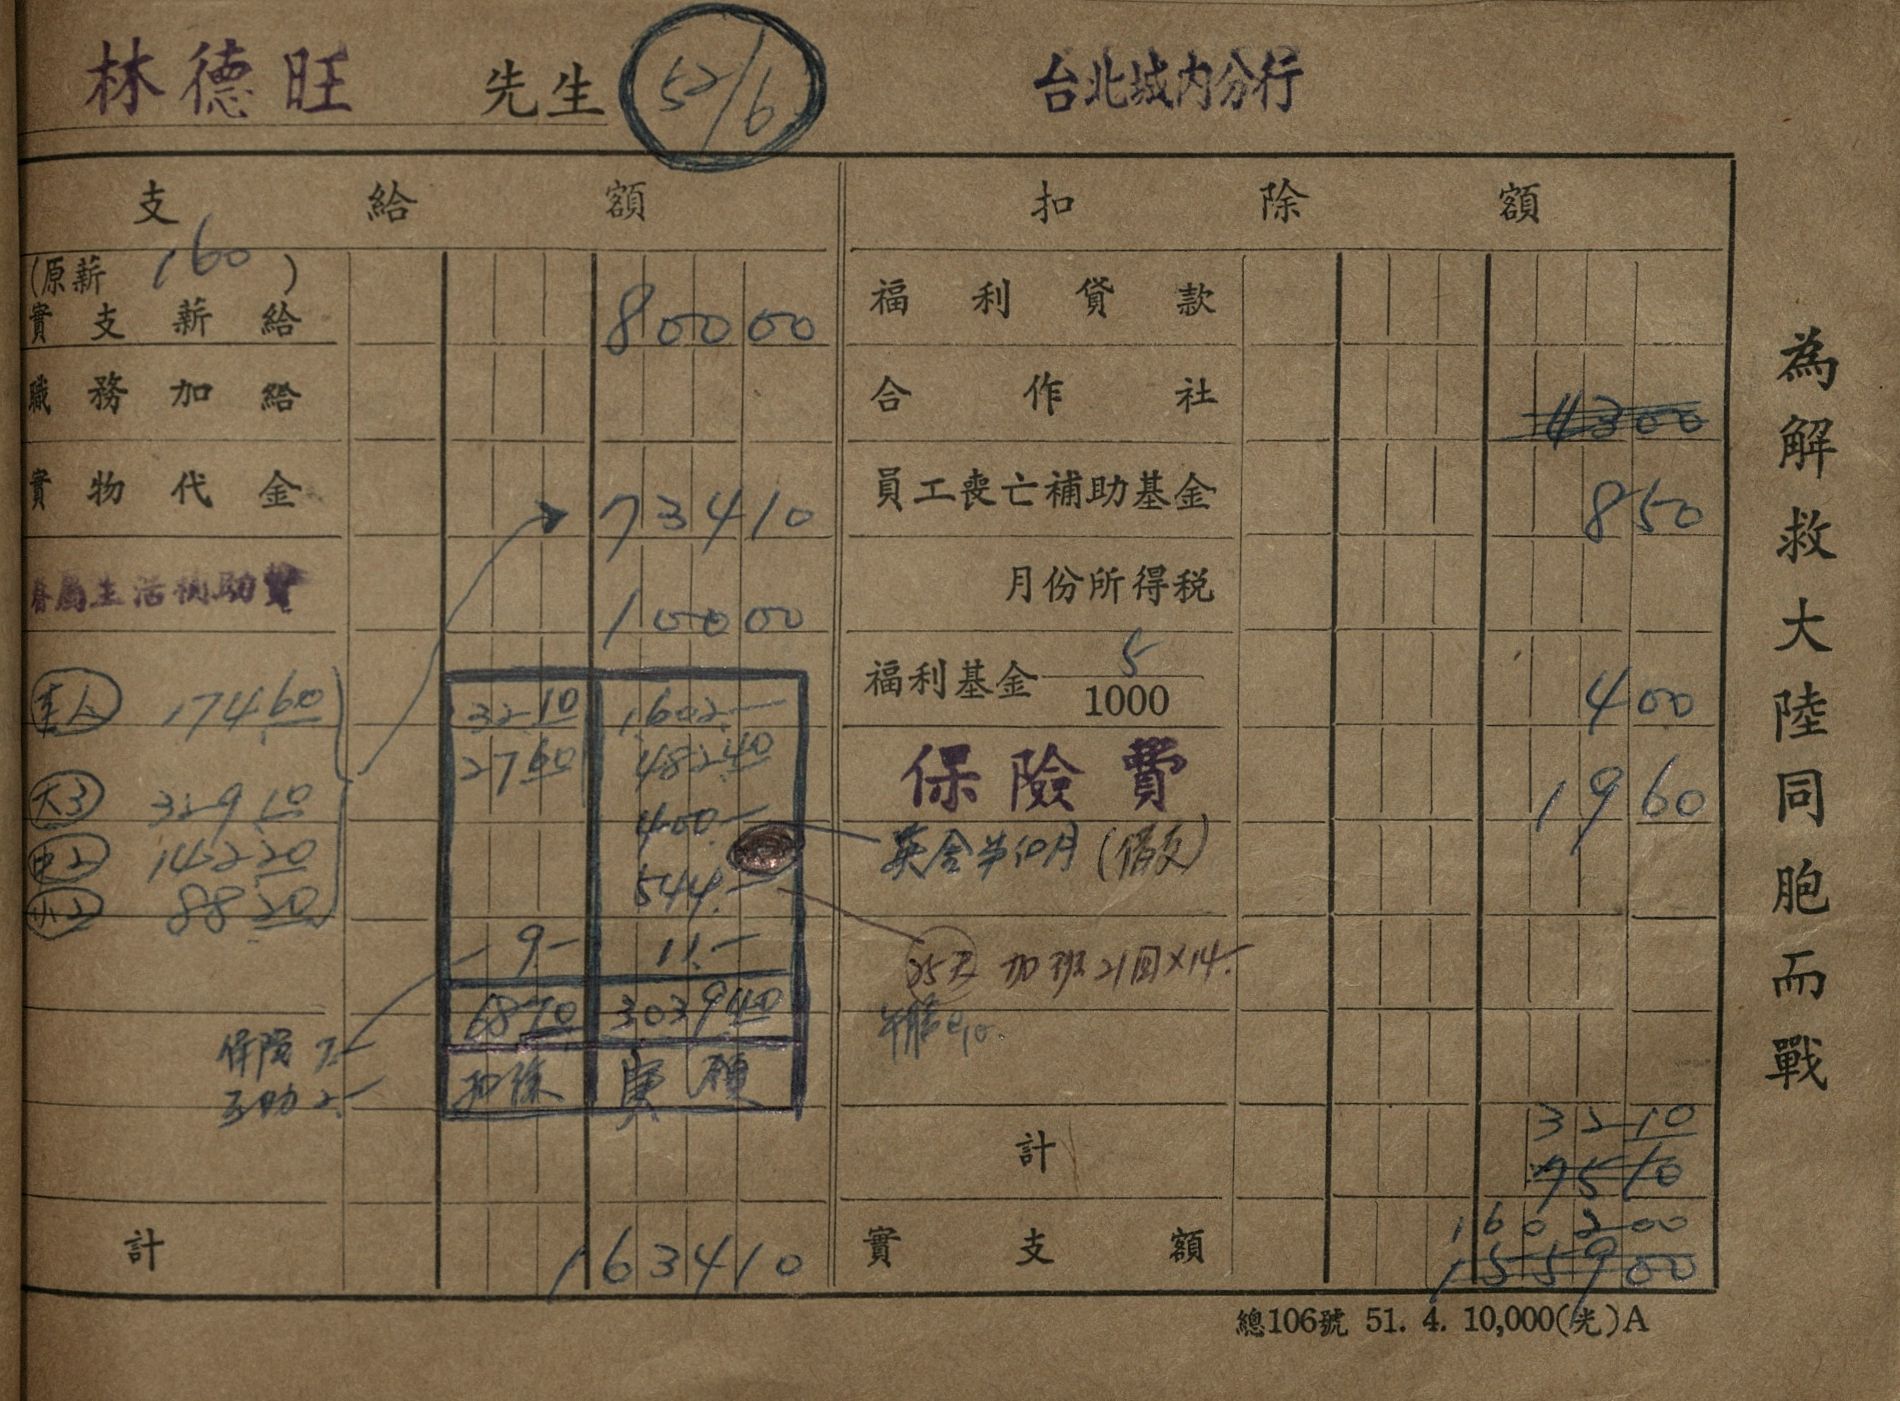 林德旺 先生 52/6 台北城内分行
支給額
(原薪 160 )
實支薪給 80000
職務加給
實物代金 73410
眷屬生活補助費 10000
本人 174.60
大3 329.10
中2 142.20
小2 88.20
32.10 1,602.-
27.60 482.40
400.-
544.-
9- 11.-
68.70 3039.40
扣除 實領
保險 7.-
互助 2.-
計 163410
扣除額
福利貸款
合作社 4300
員工喪亡補助基金 850
月份所得税
福利基金 5/1000 400
保險費 1960
加班21回×14.-
計 3210
7510
實支額 160200
155900
為解救大陸同胞而戰
總106號 51. 4. 10,000(光)A